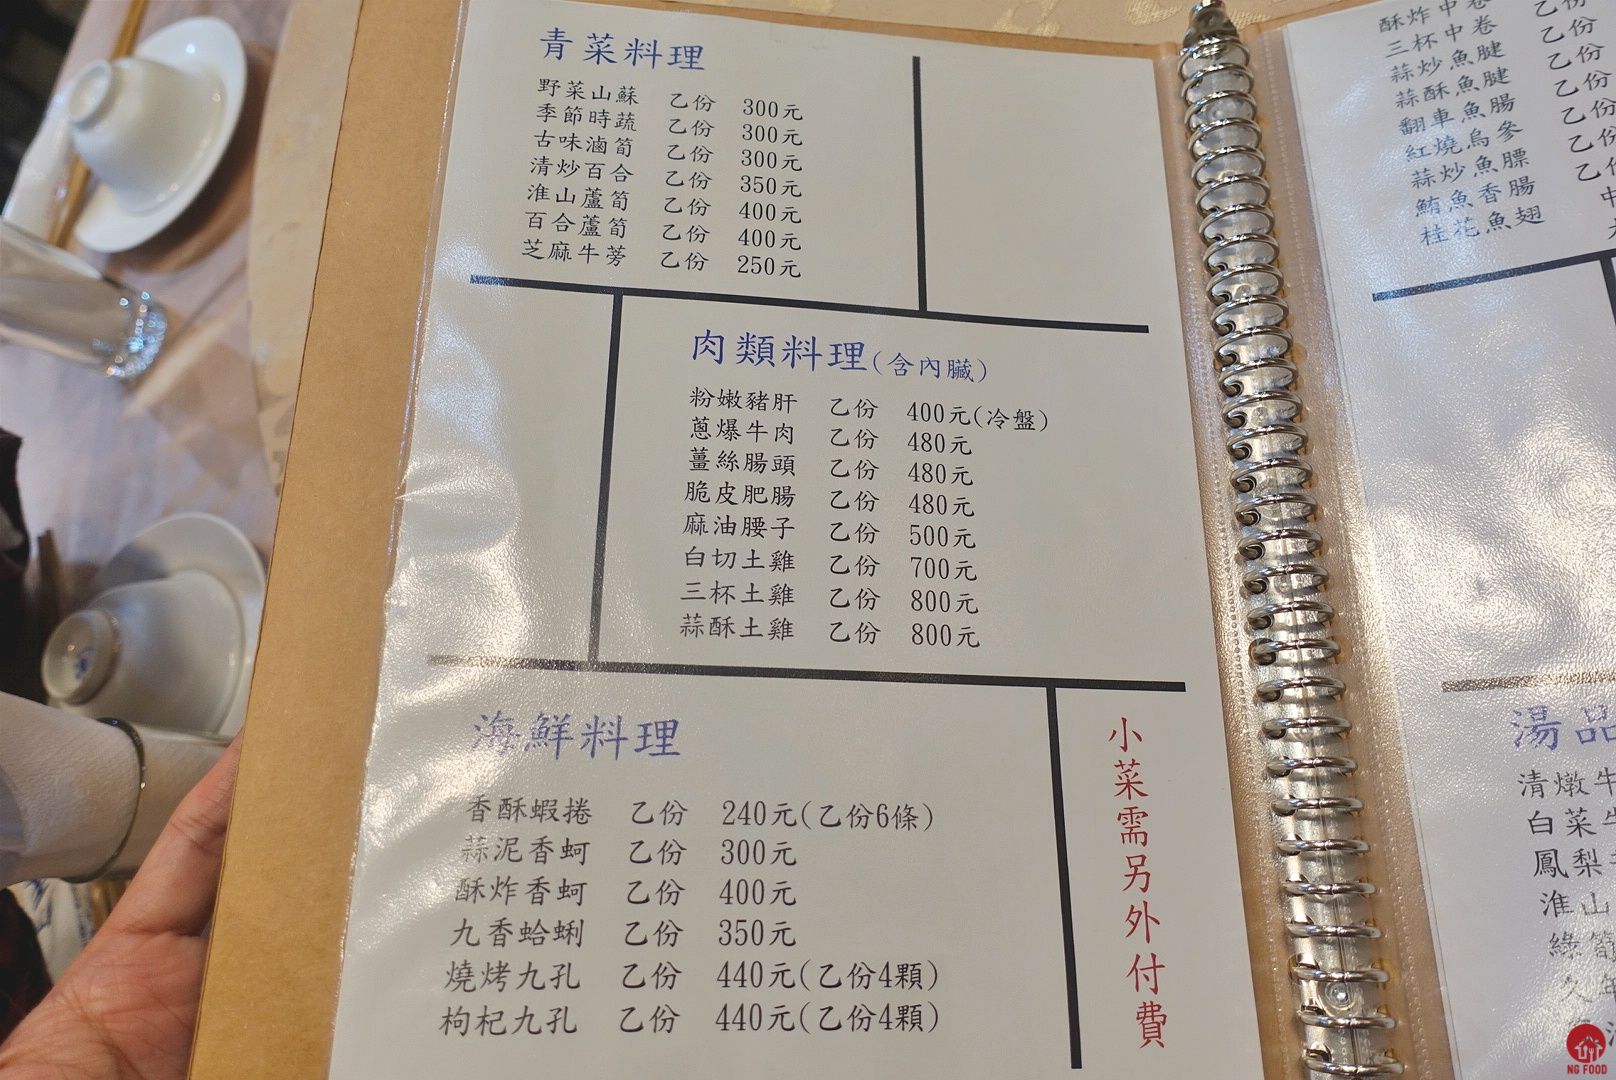 青菜料理
野菜山蘇 乙份 300元
季節時蔬 乙份 300元
古味滷筍 乙份 300元
清炒百合 乙份 350元
淮山蘆筍 乙份 400元
百合蘆筍 乙份 400元
芝麻牛蒡 乙份 250元
肉類料理(含內臟)
粉嫩豬肝 乙份 400元(冷盤)
蔥爆牛肉 乙份 480元
薑絲腸頭 乙份 480元
脆皮肥腸 乙份 480元
麻油腰子 乙份 500元
白切土雞 乙份 700元
三杯土雞 乙份 800元
蒜酥土雞 乙份 800元
海鮮料理
香酥蝦捲 乙份 240元(乙份6條)
蒜泥香蚵 乙份 300元
酥炸香蚵 乙份 400元
九香蛤蜊 乙份 350元
燒烤九孔 乙份 440元(乙份4顆)
枸杞九孔 乙份 440元(乙份4顆)
小菜需另外付費
酥炸中卷 乙份
三杯中卷 乙份
蒜炒魚腱 乙份
蒜酥魚腱 乙份
翻車魚腸 乙份
紅燒烏參 乙份
蒜炒魚膘 乙份
鮪魚香腸
桂花魚翅 中
湯品
清燉牛
白菜
鳳梨
淮山
NG FOOD